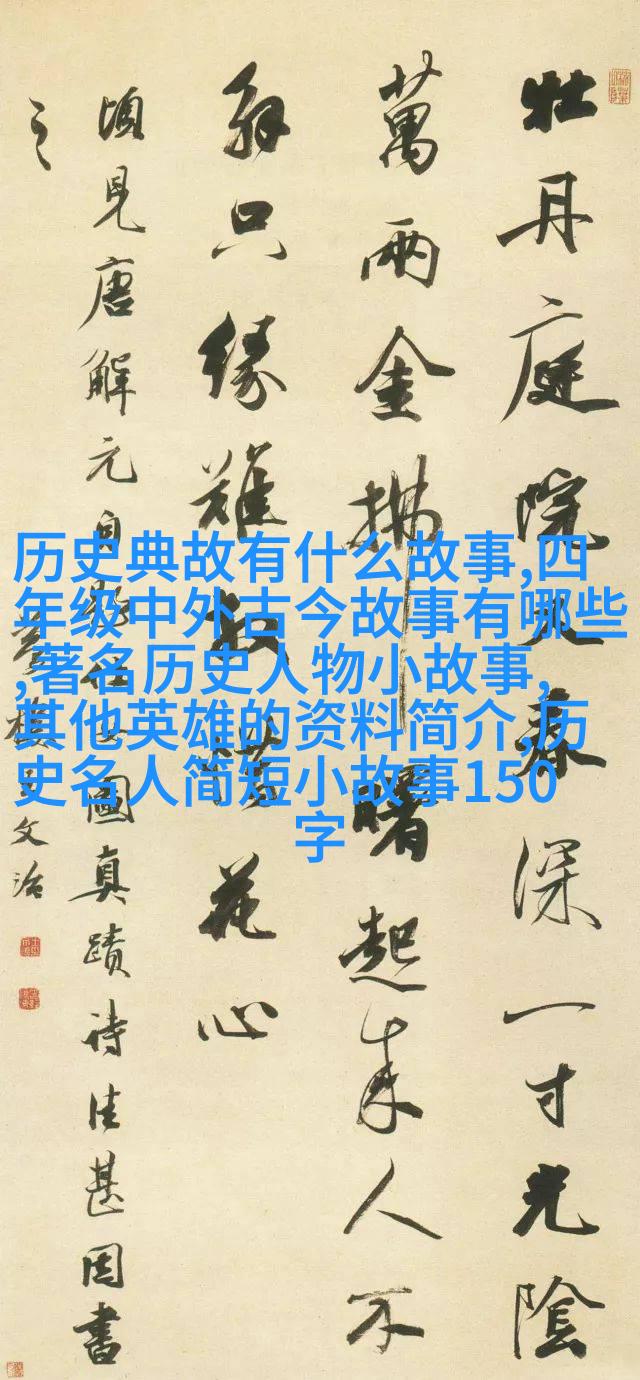 牡丹庭院又春深一寸光陰
萬兩金拂曙起來人不
解只緣難放惜花心
頃見唐解元自真蹟詩佳甚因書
之
夢樓王文治
历史典故有什么故事,四
年级中外古今故事有哪些
,著名历史人物小故事,
其他英雄的资料简介,历
史名人简短小故事150
字